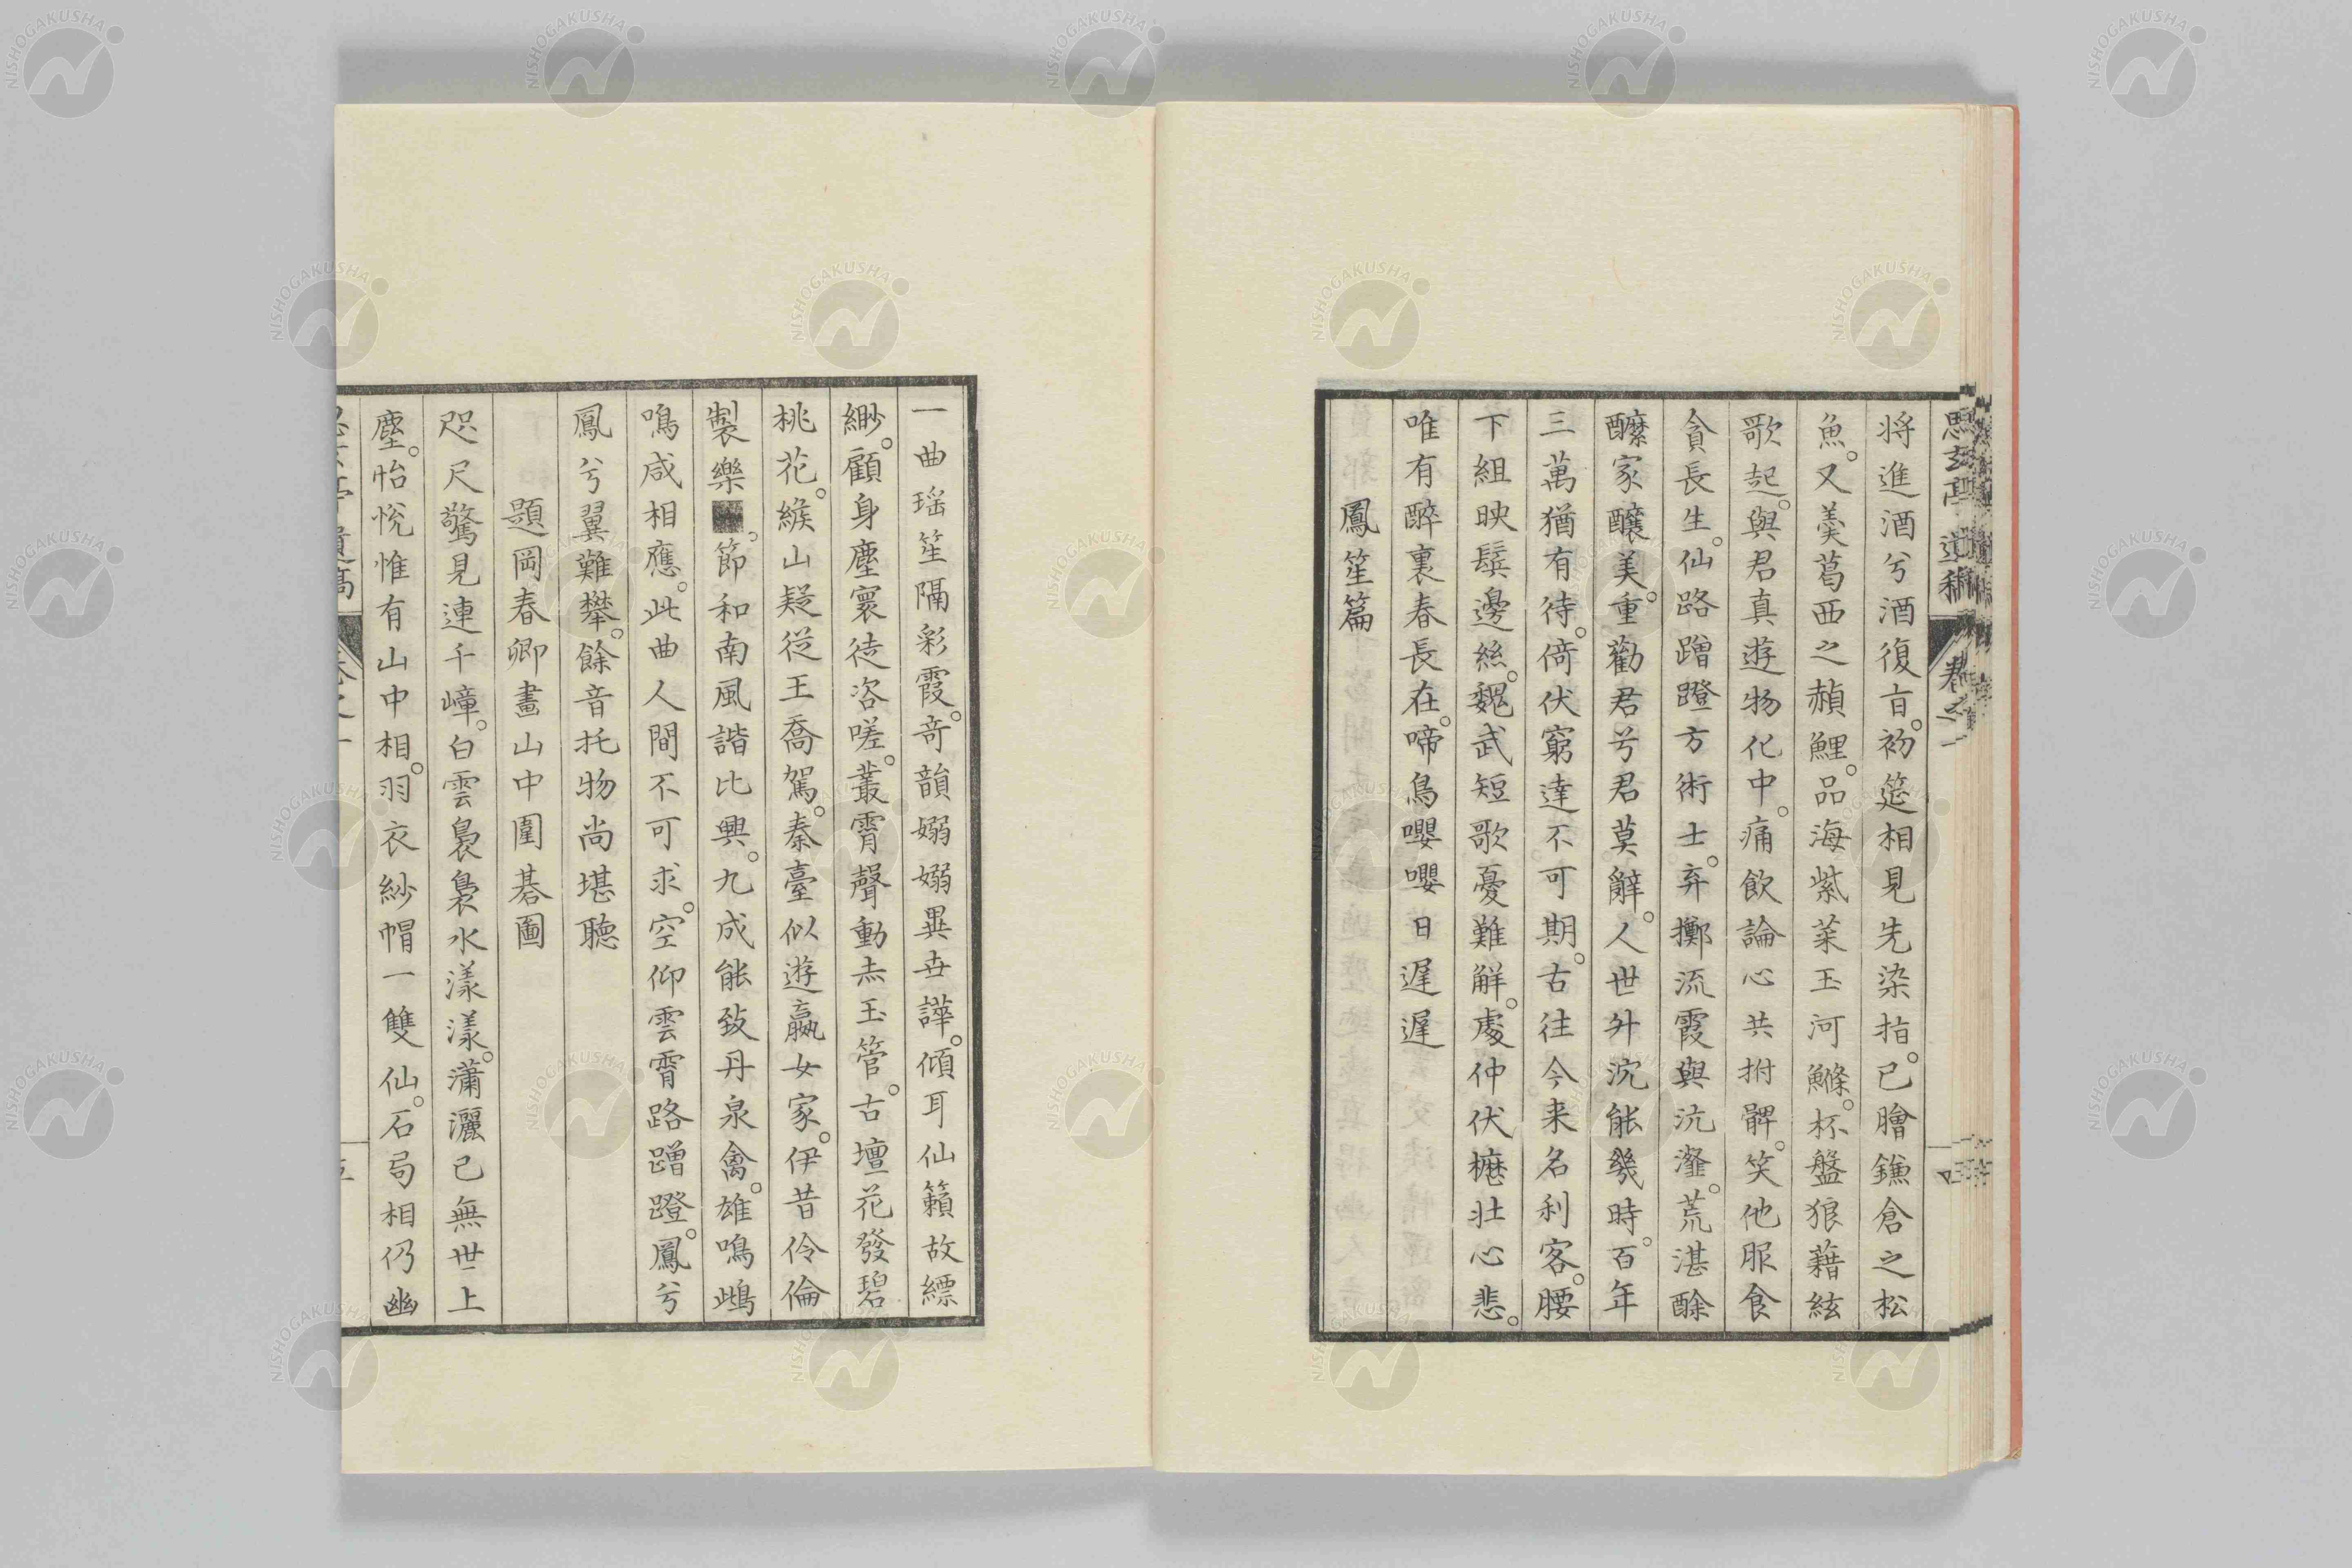 將進酒兮酒復旨。初筵相見先染指。已膾鎌倉之松
魚。又羹葛西之赬鯉。品海紫菜玉河鰷。杯盤狼藉絃
歌起。與君真遊物化中。痛飲論心共拊髀。笑他服食
貪長生。仙路蹭蹬方術士。弃擲流霞與沆瀣。荒湛酴
醿家釀美。重勸君兮君莫辭。人世升沉能幾時。百年
三萬猶有待。倚伏窮達不可期。古往今来名利客。腰
下組映鬂邊絲。魏武短歌憂難解。處仲伏櫪壯心悲。
唯有醉裏春長在。啼鳥嚶嚶日遲遲
鳳笙篇
一曲瑶笙隔彩霞。奇韻嫋嫋異世譁。傾耳仙籟故縹
緲。顧身塵寰徒咨嗟。叢霄聲動赤玉管。古壇花發碧
桃花。緱山疑從王喬駕。秦臺似遊嬴女家。伊昔伶倫
製樂。節和南風諧比興。九成能致丹泉禽。雄鳴鴟
鳴咸相應。此曲人間不可求。空仰雲霄路蹭蹬。鳳兮
鳳兮翼難攀。餘音托物尚堪聽
題岡春卿畫山中圍碁圖
咫尺驚見連千嶂。白雲裊裊水漾漾。瀟灑已無世上
塵。怡悅惟有山中相。羽衣紗帽一雙仙。石局相仍幽
思玄亭遺稿 卷之一 四
NISHOGAKUSHA